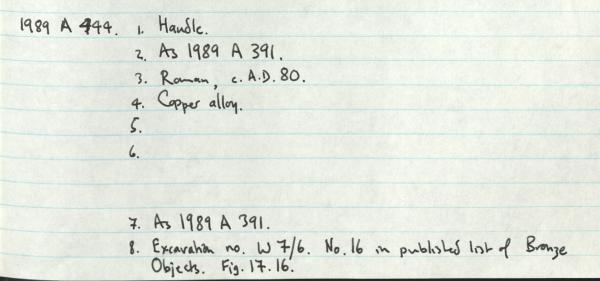 1989 A 444. 1. Handle.
2. As 1989 A 391.
3. Roman, c. A.D. 80.
4. Copper alloy.
5.
6.
7. As 1989 A 391.
8. Excavation no. W 7/6. No. 16 in published list of Bronze
Objects. Fig. 17.16.